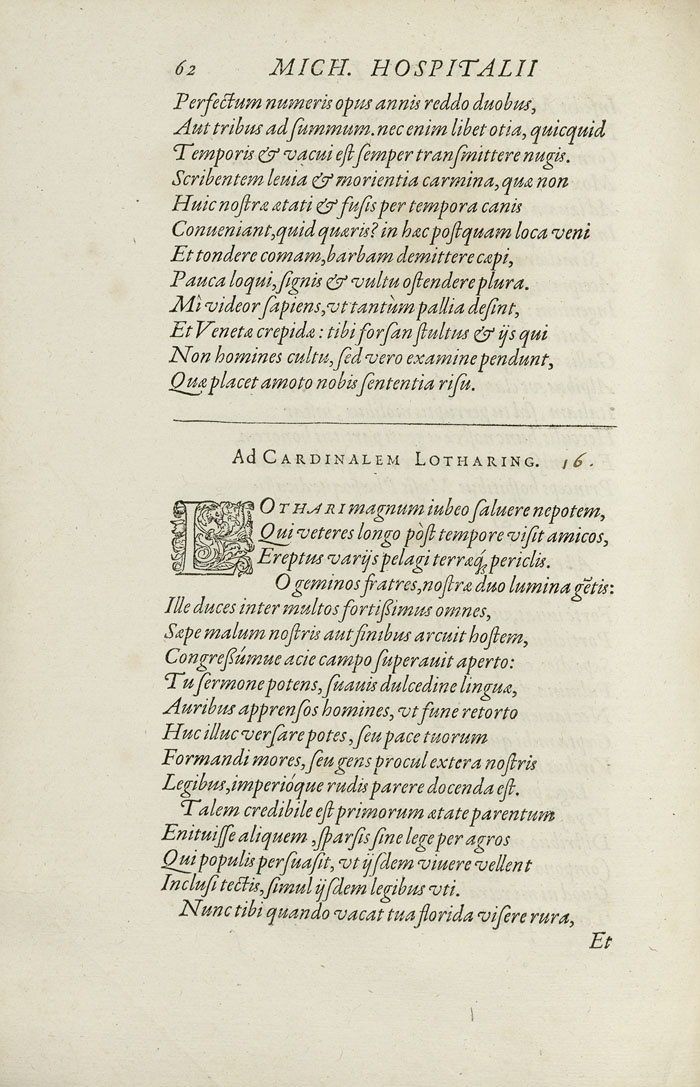 62 MICH. HOSPITALII
Perfectum numeris opus annis reddo duobus,
Aut tribus ad ſummum. nec enim libet otia, quicquid
Temporis & vacui eſt ſemper tranſmittere nugis.
Scribentem leuia & morientia carmina, quæ non
Huic noſtræ ætati & fuſis per tempora canis
Conueniant, quid quæris? in hæc poſtquam loca veni
Et tondere comam, barbam demittere cæpi,
Pauca loqui, ſignis & vultu oſtendere plura.
Mì videor ſapiens, vt tantùm pallia deſint,
Et Venetæ crepidæ: tibi forſan ſtultus & ijs qui
Non homines cultu, ſed vero examine pendunt,
Quæ placet amoto nobis ſententia riſu.
Ad CARDINALEM LOTHARING. 16.
LOTHARI magnum iubeo ſaluere nepotem,
Qui veteres longo pòſt tempore viſit amicos,
Ereptus varijs pelagi terræq́; periclis.
O geminos fratres, noſtræ duo lumina gẽtis:
Ille duces inter multos fortißimus omnes,
Sæpe malum noſtris aut finibus arcuit hoſtem,
Congreßúmue acie campo ſuperauit aperto:
Tu ſermone potens, ſuauis dulcedine linguæ,
Auribus apprenſos homines, vt fune retorto
Huc illuc verſare potes, ſeu pace tuorum
Formandi mores, ſeu gens procul extera noſtris
Legibus, imperióque rudis parere docenda eſt.
Talem credibile eſt primorum ætate parentum
Enituiſſe aliquem, ſparſis ſine lege per agros
Qui populis perſuaſit, vt ijſdem viuere vellent
Incluſi tectis, ſimul ijſdem legibus vti.
Nunc tibi quando vacat tua florida viſere rura,
Et